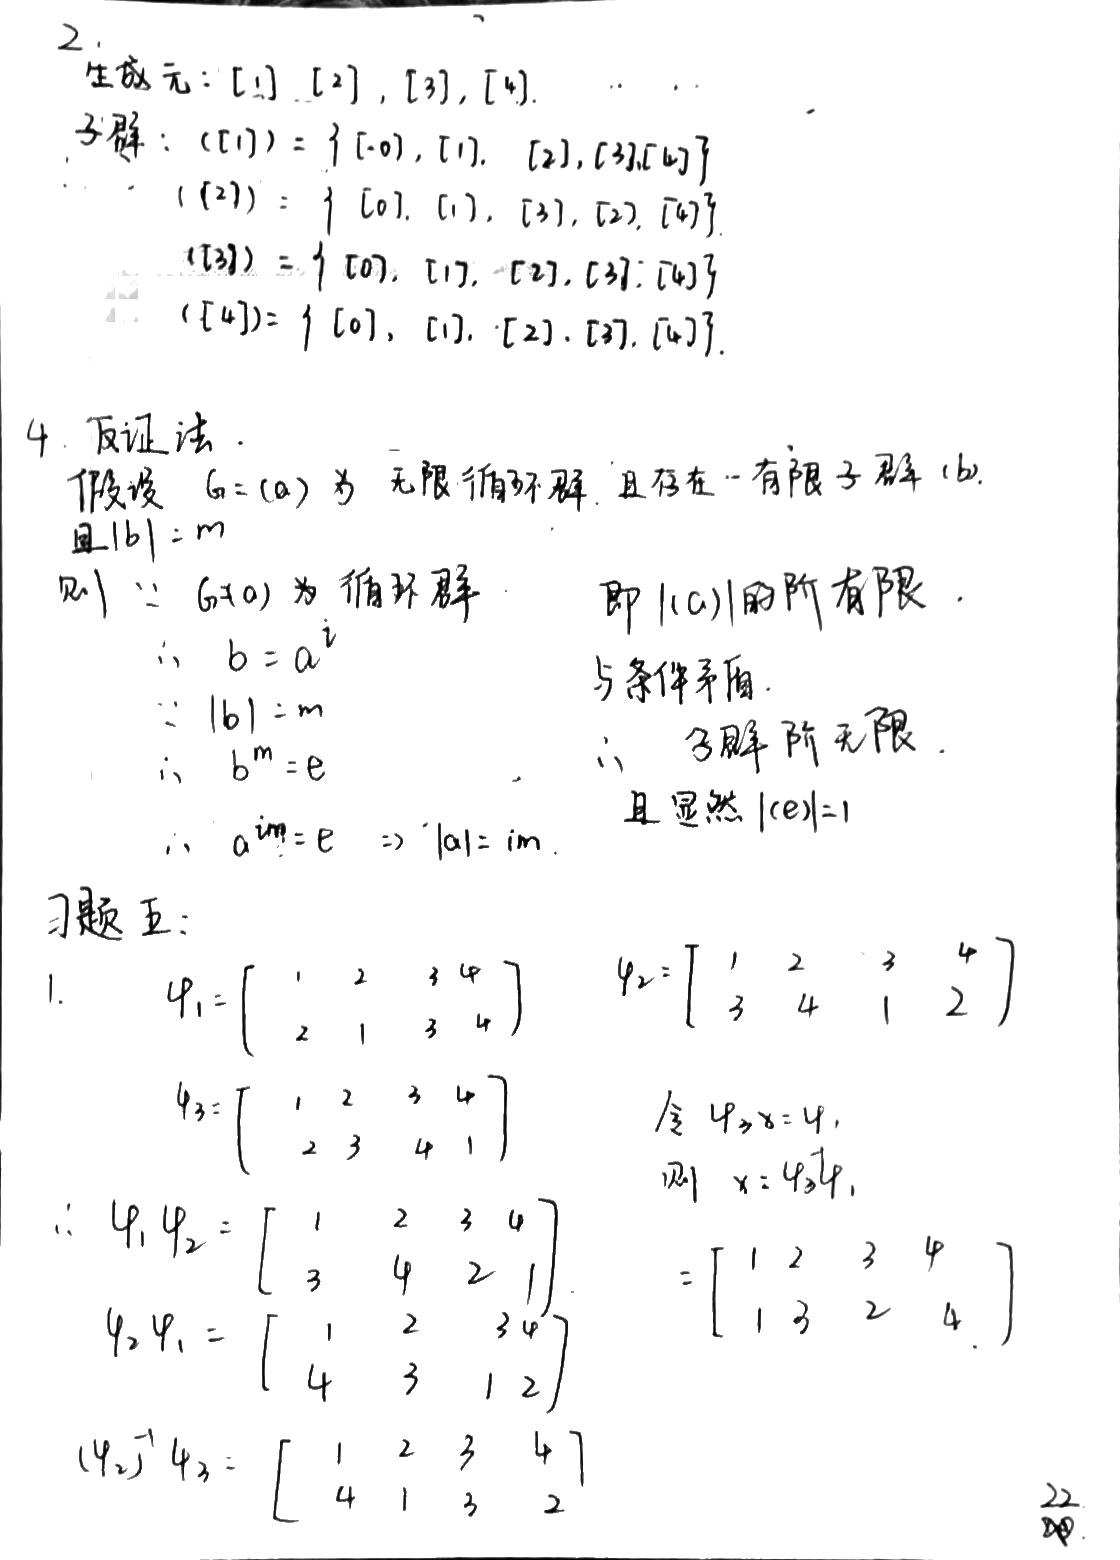 2.
生成元：[1] [2]，[3]，[4].
子群：([1]) = {[0]，[1]. [2]，[3]，[4]}
([2]) = {[0]. [1]，[3]，[2]，[4]}.
([3]) = {[0]，[1]，[2]，[3]，[4]}
([4]) = {[0]，[1]. [2]. [3]. [4]}.
4. 反证法.
假设 G=(a) 为 无限循环群. 且存在一有限子群 (b).
且|b| = m
则 ∵ G=(a) 为循环群
∴ b = a^i
∵ |b| = m
∴ b^m = e
∴ a^{im} = e => |a| = im.
即 |(a)|的阶有限.
与条件矛盾.
∴ 子群阶无限.
且显然 |(e)|=1
习题五：
1. φ₁ = [ 1 2 3 4 ]
[ 2 1 3 4 ]
φ₂ = [ 1 2 3 4 ]
[ 3 4 1 2 ]
φ₃ = [ 1 2 3 4 ]
[ 2 3 4 1 ]
令 φ₃x = φ₁
则 x = φ₃⁻¹φ₁
= [ 1 2 3 4 ]
[ 1 3 2 4 ].
∴ φ₁φ₂ = [ 1 2 3 4 ]
[ 3 4 2 1 ]
φ₂φ₁ = [ 1 2 3 4 ]
[ 4 3 1 2 ]
(φ₂)⁻¹φ₃ = [ 1 2 3 4 ]
[ 4 1 3 2 ]
22